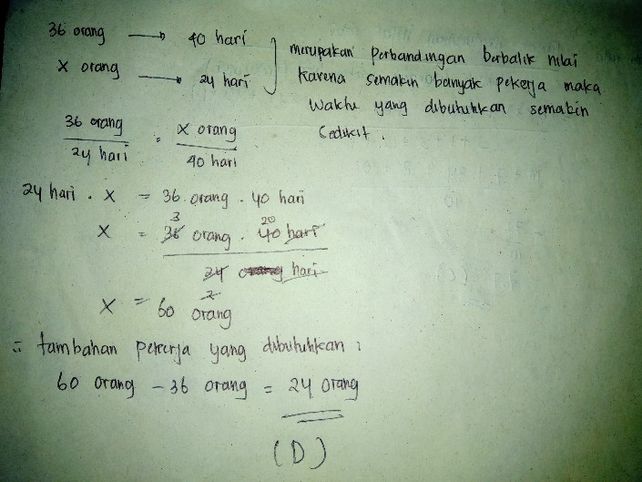 36 orang → 40 hari
x orang → 24 hari
merupakan perbandingan berbalik nilai
karena semakin banyak pekerja maka
waktu yang dibutuhkan semakin
sedikit.
36 orang / 24 hari = x orang / 40 hari
24 hari . x = 36 orang . 40 hari
3 20
x = 36 orang . 40 hari
24 hari
2
x = 60 orang
∴ tambahan pekerja yang dibutuhkan :
60 orang - 36 orang = 24 orang
(D)